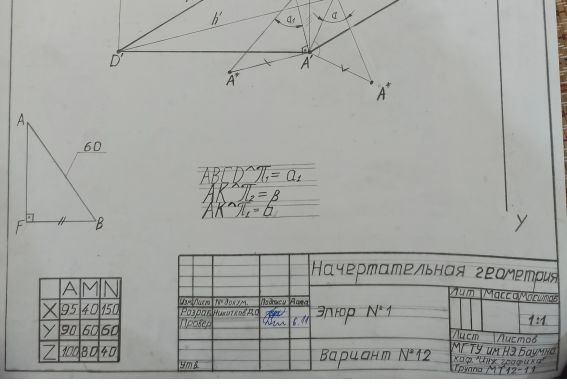 h' α₁ α
D' A'
A* A*
A
60
F B
ABCD^П₁= α₁
AK^П₂= β
AK^П₁= б
У
A M N
X 95 40 150
Y 90 60 60
Z 100 80 40
Начертательная геометрия
Изм Лист № докум. Подписи Дата
Разраб. Никитков Д.О.
Провер 6.11
Утв.
Эпюр №1
Лит Масса Масштаб
1:1
Лист Листов
Вариант №12
МГТУ им. Н.Э. Баумана
каф. "Инж. графика"
Группа МТ12-11